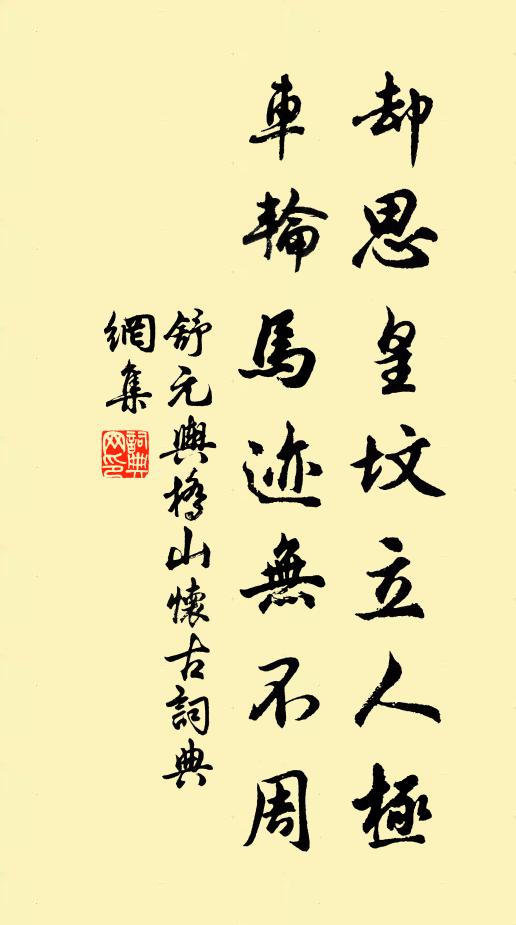 却思皇坟立人極
車輪馬迹無不周
舒元輿橋山懷古詞典
網集
詞典網印